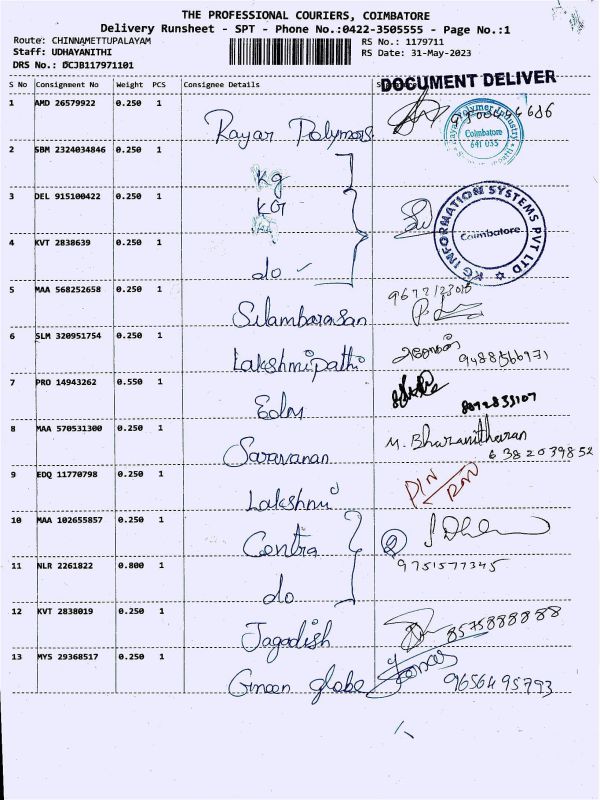 THE PROFESSIONAL COURIERS, COIMBATORE
Delivery Runsheet - SPT - Phone No.:0422-3505555 - Page No.:1
Route: CHINNAMETTUPALAYAM
RS No.: 1179711
Staff: UDHAYANITHI
RS Date: 31-May-2023
DRS No.: DCJB117971101
DOCUMENT DELIVER
S No Consignment No Weight PCS Consignee Details
1 AMD 26579922 0.250 1 Rayar Polymers
Rayar Polymer Industry Coimbatore 641 035
2 SBM 2324034846 0.250 1 KG
3 DEL 915100422 0.250 1 KG
KG INFORMATION SYSTEMS PVT LTD Coimbatore
4 KVT 2838639 0.250 1 do
5 MAA 568252658 0.250 1 Silambarasan
6 SLM 320951754 0.250 1 Lakshmipathi 9488566971
7 PRO 14943262 0.550 1 Edm
8 MAA 570531300 0.250 1 Saravanan M. Bharanitharan
6382039852
9 EDQ 11770798 0.250 1 Lakshmi
10 MAA 102655857 0.250 1 Centra 2
11 NLR 2261822 0.800 1 do 9751577345
12 KVT 2838019 0.250 1 Jagadish 8575888888
13 MYS 29368517 0.250 1 Green globe 9656495793